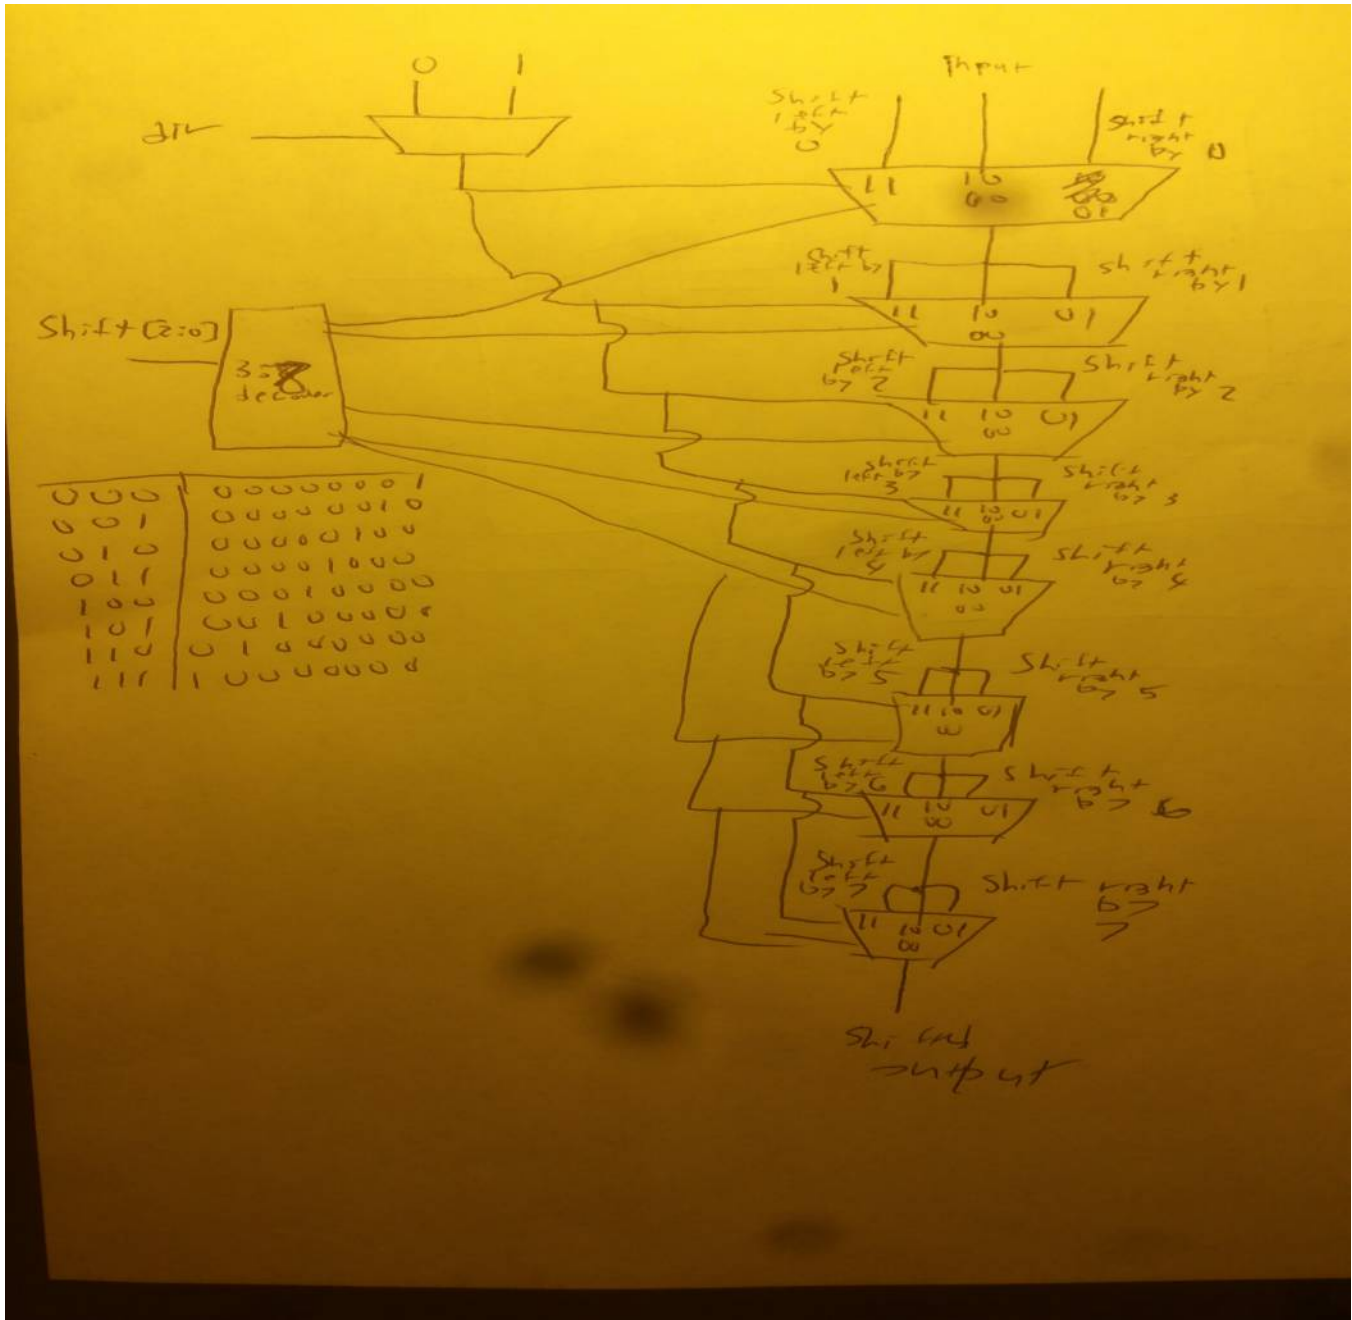 0 1
dir
Input
Shift
left
by
0
Shift
right
by 0
11
01
00
10
Shift
left by
1
Shift
right
by 1
11
01
00
10
Shift [2:0]
3:8
decoder
Shift
left
by 2
Shift
right
by 2
11
01
00
10
Shift
left by
3
Shift
right
by 3
11
01
00
10
Shift
left by
4
Shift
right
by 4
11 01 10
00
Shift
left
by 5
Shift
right
by 5
11 01 10
Shift
left
by 6
Shift
right
by 6
11 01 10
00
Shift
left
by 7
Shift right
by
7
11 01 10
00
Shifted
output
0 0 0 0 0 0 0 0 0 0 1
0 0 1 0 0 0 0 0 0 1 0
0 1 0 0 0 0 0 0 1 0 0
0 1 1 0 0 0 0 1 0 0 0
1 0 0 0 0 0 1 0 0 0 0
1 0 1 0 0 1 0 0 0 0 0
1 1 0 0 1 0 0 0 0 0 0
1 1 1 1 0 0 0 0 0 0 0